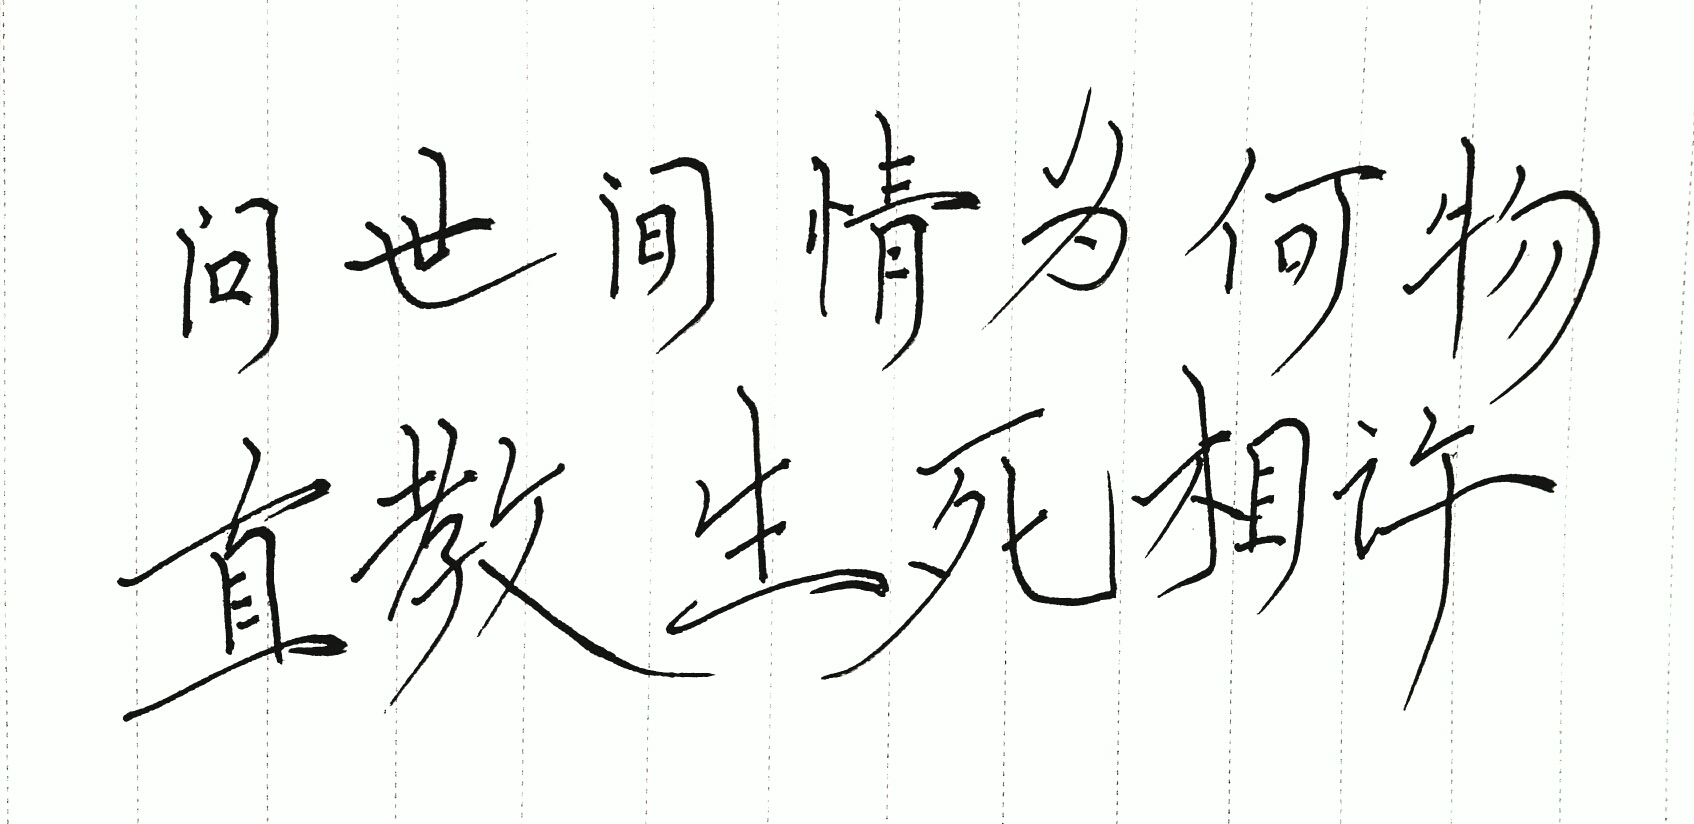 问世间情为何物
直教生死相许